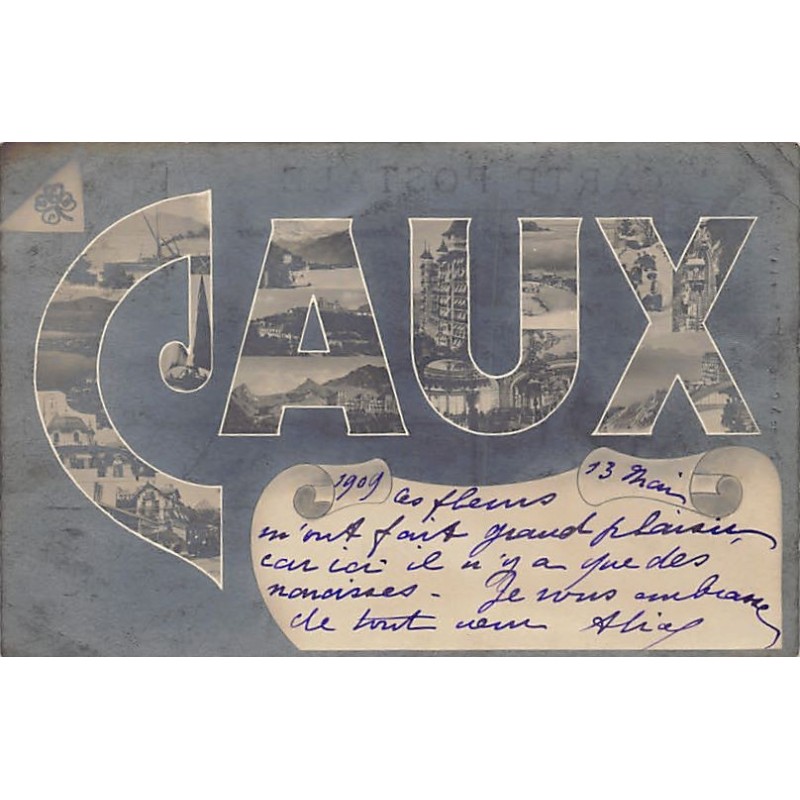 CARTE POSTALE
CAUX
1909 13 Mai
Les fleurs
m'ont fait grand plaisir,
car ici il n'y a que des
narcisses - Je vous embrasse
de tout cœur